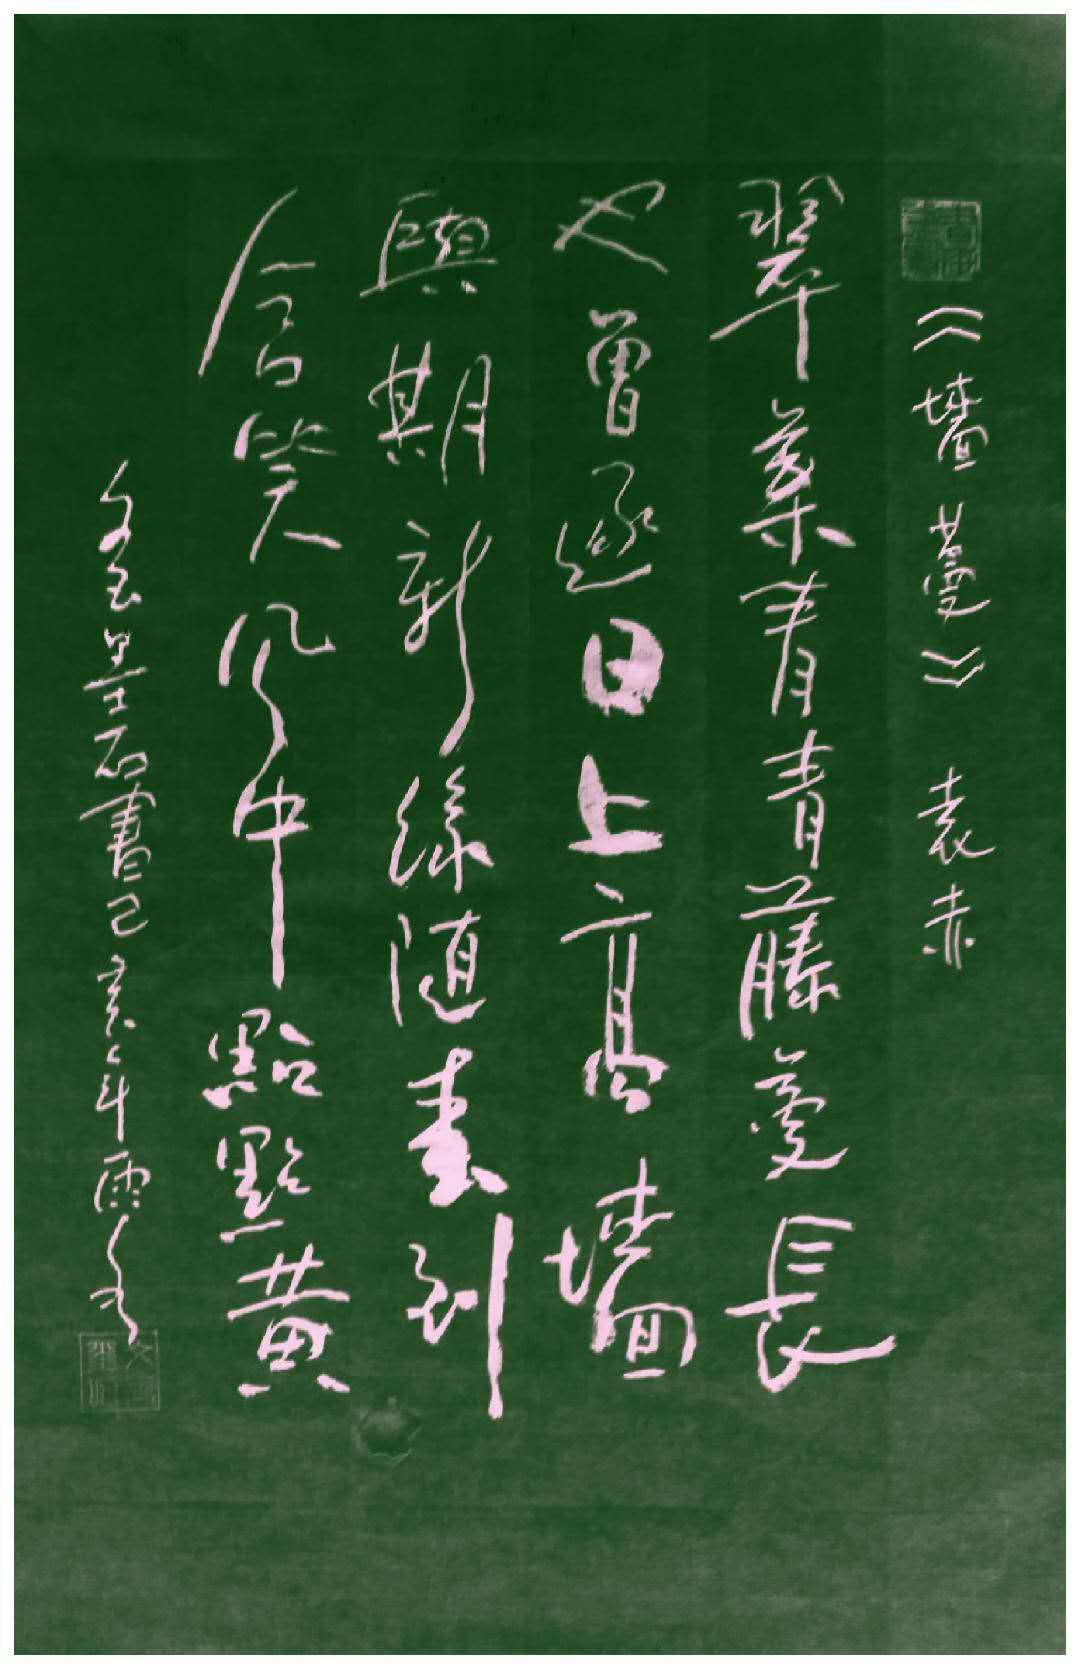 《墻蔓》 袁赤
翠葉青青藤蔓長
也曾逐日上高墻
與期新綠隨春到
含笑風中點點黃
書己亥年雨